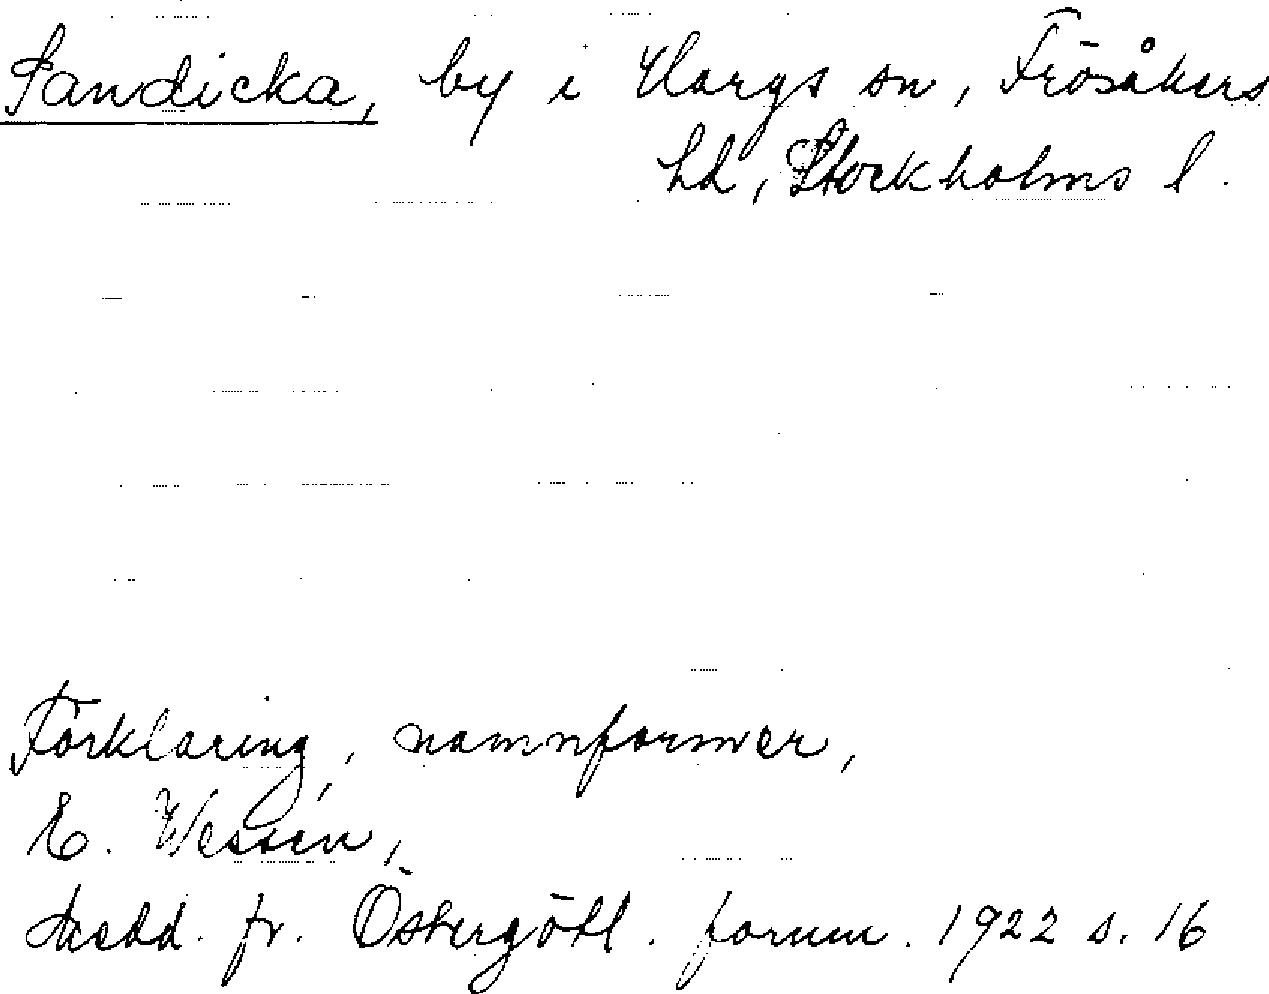 Sandicka, by i Hargs sn, Frösåkers
hd, Stockholms l.
Förklaring, namnformer,
E. Wessén,
Medd. fr. Östergötl. fornm. 1922 s. 16